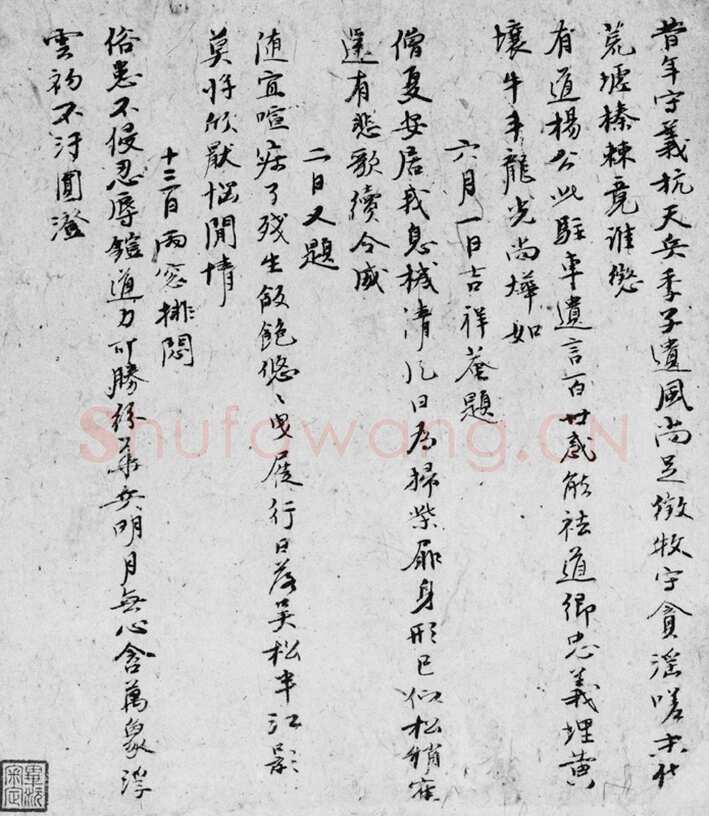 昔年守義抗天兵季子遺風尚足徵牧守貪滛嗟末代
荒墟榛棘竟誰懲
有道楊公此駐車遺言百世感能祛道卿忠義埋黄
壤牛斗龍光尚燁如
六月一日吉祥菴題
僧夏安居我息機清風日為掃柴扉身形已似松梢寉
還有悲歌續令威
二日又題
随宜喧寂了残生飯飽悠〻曳屐行日落吴松半江影
莫將欣厭惱閒情
十三日雨窓排悶
俗患不侵忍辱鎧道力可勝紛華兵明月無心含萬象浮
雲初不汙圓澄
Shufawang.CN